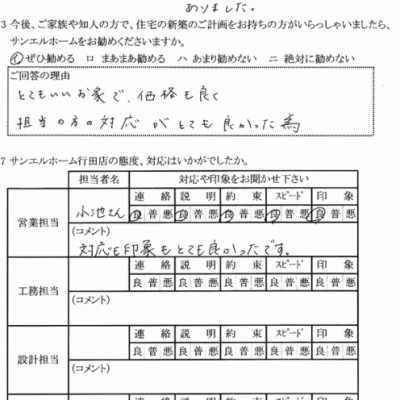 ありました。
3 今後、ご家族や知人の方で、住宅の新築のご計画をお持ちの方がいらっしゃいましたら、
サンエルホームをお勧めくださいますか。
イ ぜひ勧める ロ まあまあ勧める ハ あまり勧めない ニ 絶対に勧めない
ご回答の理由
とてもいいお家で、価格も良く
担当の方の対応がとても良かった為
7 サンエルホーム行田店の態度、対応はいかがでしたか。
担当者名 対応や印象をお聞かせ下さい
営業担当 小池さん
連絡 説明 約束 スピード 印象
良 普 悪 良 普 悪 良 普 悪 良 普 悪 良 普 悪
(コメント)
対応も印象もとても良かったです。
工務担当
連絡 説明 約束 スピード 印象
良 普 悪 良 普 悪 良 普 悪 良 普 悪 良 普 悪
(コメント)
設計担当
連絡 説明 約束 スピード 印象
良 普 悪 良 普 悪 良 普 悪 良 普 悪 良 普 悪
(コメント)
連絡 説明 約束 スピード 印象